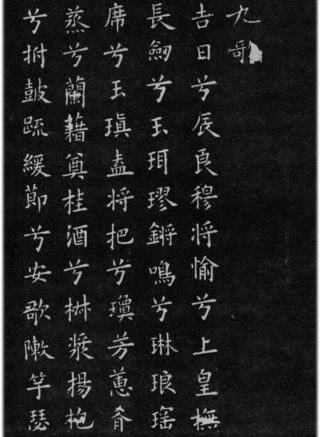 九哥
𠮷日兮辰良穆将愉兮上皇撫
長劒兮玉珥璆鏘鳴兮琳琅瑶
席兮玉瑱盍将把兮瓊芳蕙肴
蒸兮蘭藉奠桂酒兮椒漿揚枹
兮拊鼓疏緩節兮安歌陳竽瑟